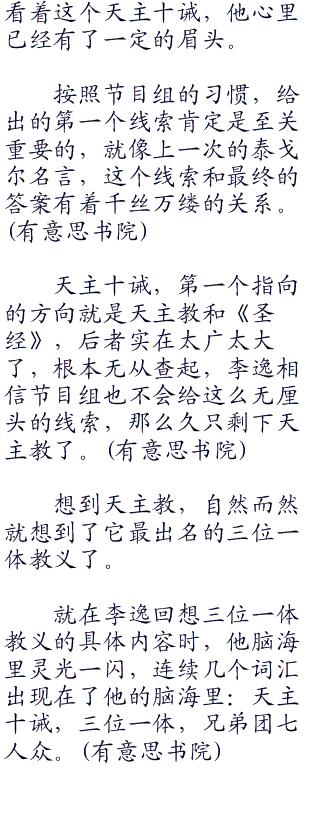 看着这个天主十诫，他心里
已经有了一定的眉头。
按照节目组的习惯，给
出的第一个线索肯定是至关
重要的，就像上一次的泰戈
尔名言，这个线索和最终的
答案有着千丝万缕的关系。
(有意思书院)
天主十诫，第一个指向
的方向就是天主教和《圣
经》，后者实在太广太大
了，根本无从查起，李逸相
信节目组也不会给这么无厘
头的线索，那么久只剩下天
主教了。(有意思书院)
想到天主教，自然而然
就想到了它最出名的三位一
体教义了。
就在李逸回想三位一体
教义的具体内容时，他脑海
里灵光一闪，连续几个词汇
出现在了他的脑海里：天主
十诫，三位一体，兄弟团七
人众。(有意思书院)